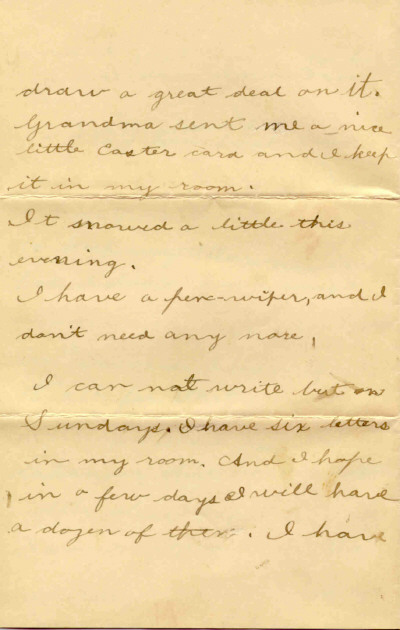 draw a great deal on it.
Grandma sent me a nice
little Caster card and I keep
it in my room.
It snowed a little this
evening.
I have a pen-wiper, and I
don't need any nore,
I can not write but on
Sundays. I have six letters
in my room. And I hope
in a few days I will have
a dozen of them. I have